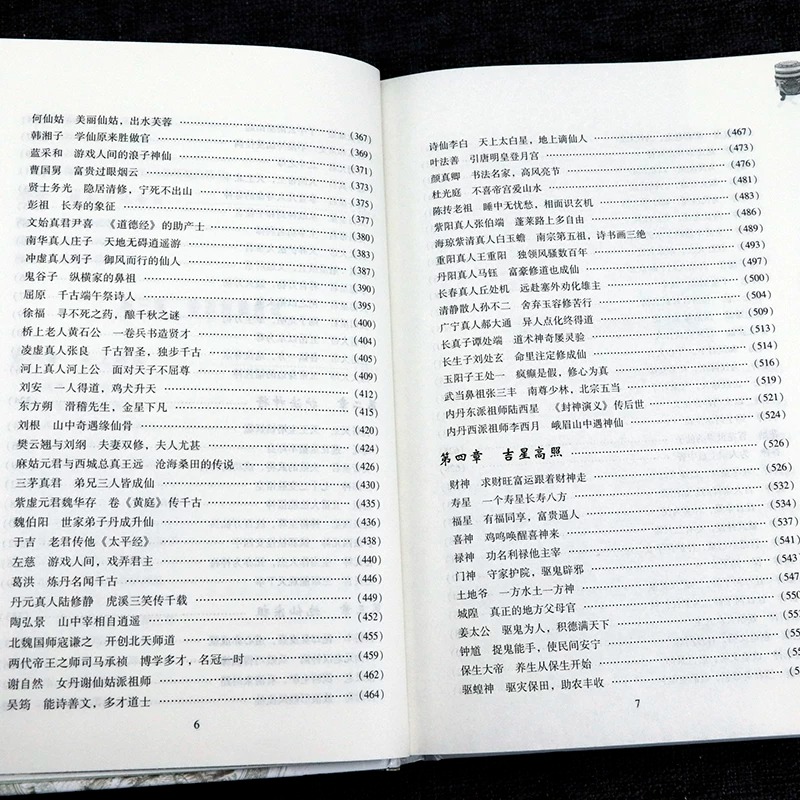 何仙姑 美丽仙姑，出水芙蓉 (367)
韩湘子 学仙原来胜做官 (369)
蓝采和 游戏人间的浪子神仙 (371)
曹国舅 富贵过眼烟云 (373)
贤士务光 隐居清修，宁死不出山 (375)
彭祖 长寿的象征 (377)
文始真君尹喜 《道德经》的助产士 (380)
南华真人庄子 天地无碍逍遥游 (383)
冲虚真人列子 御风而行的仙人 (387)
鬼谷子 纵横家的鼻祖 (390)
屈原 千古端午祭诗人 (395)
徐福 寻不死之药，酿千秋之谜 (400)
桥上老人黄石公 一卷兵书造贤才 (404)
凌虚真人张良 千古智圣，独步千古 (405)
河上真人河上公 面对天子不屈尊 (409)
刘安 一人得道，鸡犬升天 (412)
东方朔 滑稽先生，金星下凡 (415)
刘根 山中奇遇缘仙骨 (420)
樊云翘与刘纲 夫妻双修，夫人尤甚 (424)
麻姑元君与西城总真王远 沧海桑田的传说 (426)
三茅真君 弟兄三人皆成仙 (430)
紫虚元君魏华存 卷《黄庭》传千古 (435)
魏伯阳 世家弟子丹成升仙 (436)
于吉 老君传他《太平经》 (438)
左慈 游戏人间，戏弄君主 (440)
葛洪 炼丹名闻千古 (446)
丹元真人陆修静 虎溪三笑传千载 (449)
陶弘景 山中宰相自逍遥 (452)
北魏国师寇谦之 开创北天师道 (455)
两代帝王之师司马承祯 博学多才，名冠一时 (459)
谢自然 女丹谢仙姑派祖师 (462)
吴筠 能诗善文，多才道士 (464)
6
诗仙李白 天上太白星，地上谪仙人 (467)
叶法善 引唐明皇登月宫 (473)
颜真卿 书法名家，高风亮节 (476)
杜光庭 不喜帝宫爱山水 (481)
陈抟老祖 睡中无忧愁，相面识玄机 (483)
紫阳真人张伯端 蓬莱路上多自由 (486)
海琼紫清真人白玉蟾 南宗第五祖，诗书画三绝 (489)
重阳真人王重阳 独领风骚数百年 (493)
丹阳真人马钰 富豪修道也成仙 (497)
长春真人丘处机 远赴塞外劝化雄主 (500)
清静散人孙不二 舍弃玉容修苦行 (504)
广宁真人郝大通 异人点化终得道 (509)
长真子谭处端 道术神奇屡灵验 (513)
长生子刘处玄 命里注定修成仙 (514)
玉阳子王处一 疯癫是假，修心为真 (516)
武当鼻祖张三丰 南尊少林，北宗五当 (519)
内丹东派祖师陆西星 《封神演义》传后世 (521)
内丹西派祖师李西月 峨眉山中遇神仙 (524)
第四章 吉星高照 (526)
财神 求财旺富运跟着财神走 (526)
寿星 一个寿星长寿八方 (532)
福星 有福同享，富贵逼人 (534)
喜神 鸡鸣唤醒喜神来 (537)
禄神 功名利禄他主宰 (541)
门神 守家护院，驱鬼辟邪 (543
土地爷 一方水土一方神 (547
城隍 真正的地方父母官 (550
姜太公 驱鬼为人，积德满天下
钟馗 捉鬼能手，使民间安宁
保生大帝 养生从保生开始
驱蝗神 驱灾保田，助农丰收
7